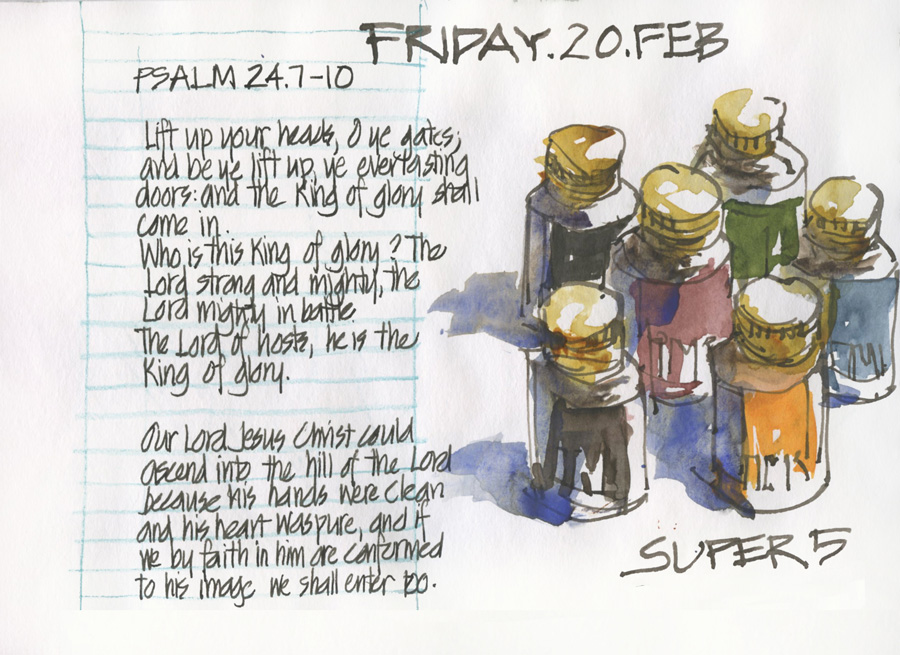 FRIDAY.20.FEB
PSALM 24.7-10
Lift up your heads, O ye gates;
and be ye lift up, ye everlasting
doors: and the King of glory shall
come in.
Who is this King of glory? The
Lord strong and mighty, the
Lord mighty in battle.
The Lord of hosts, he is the
King of glory.
Our Lord Jesus Christ could
ascend into the hill of the Lord
because his hands were clean
and his heart was pure, and if
we by faith in him are conformed
to his image we shall enter too.
SUPER 5